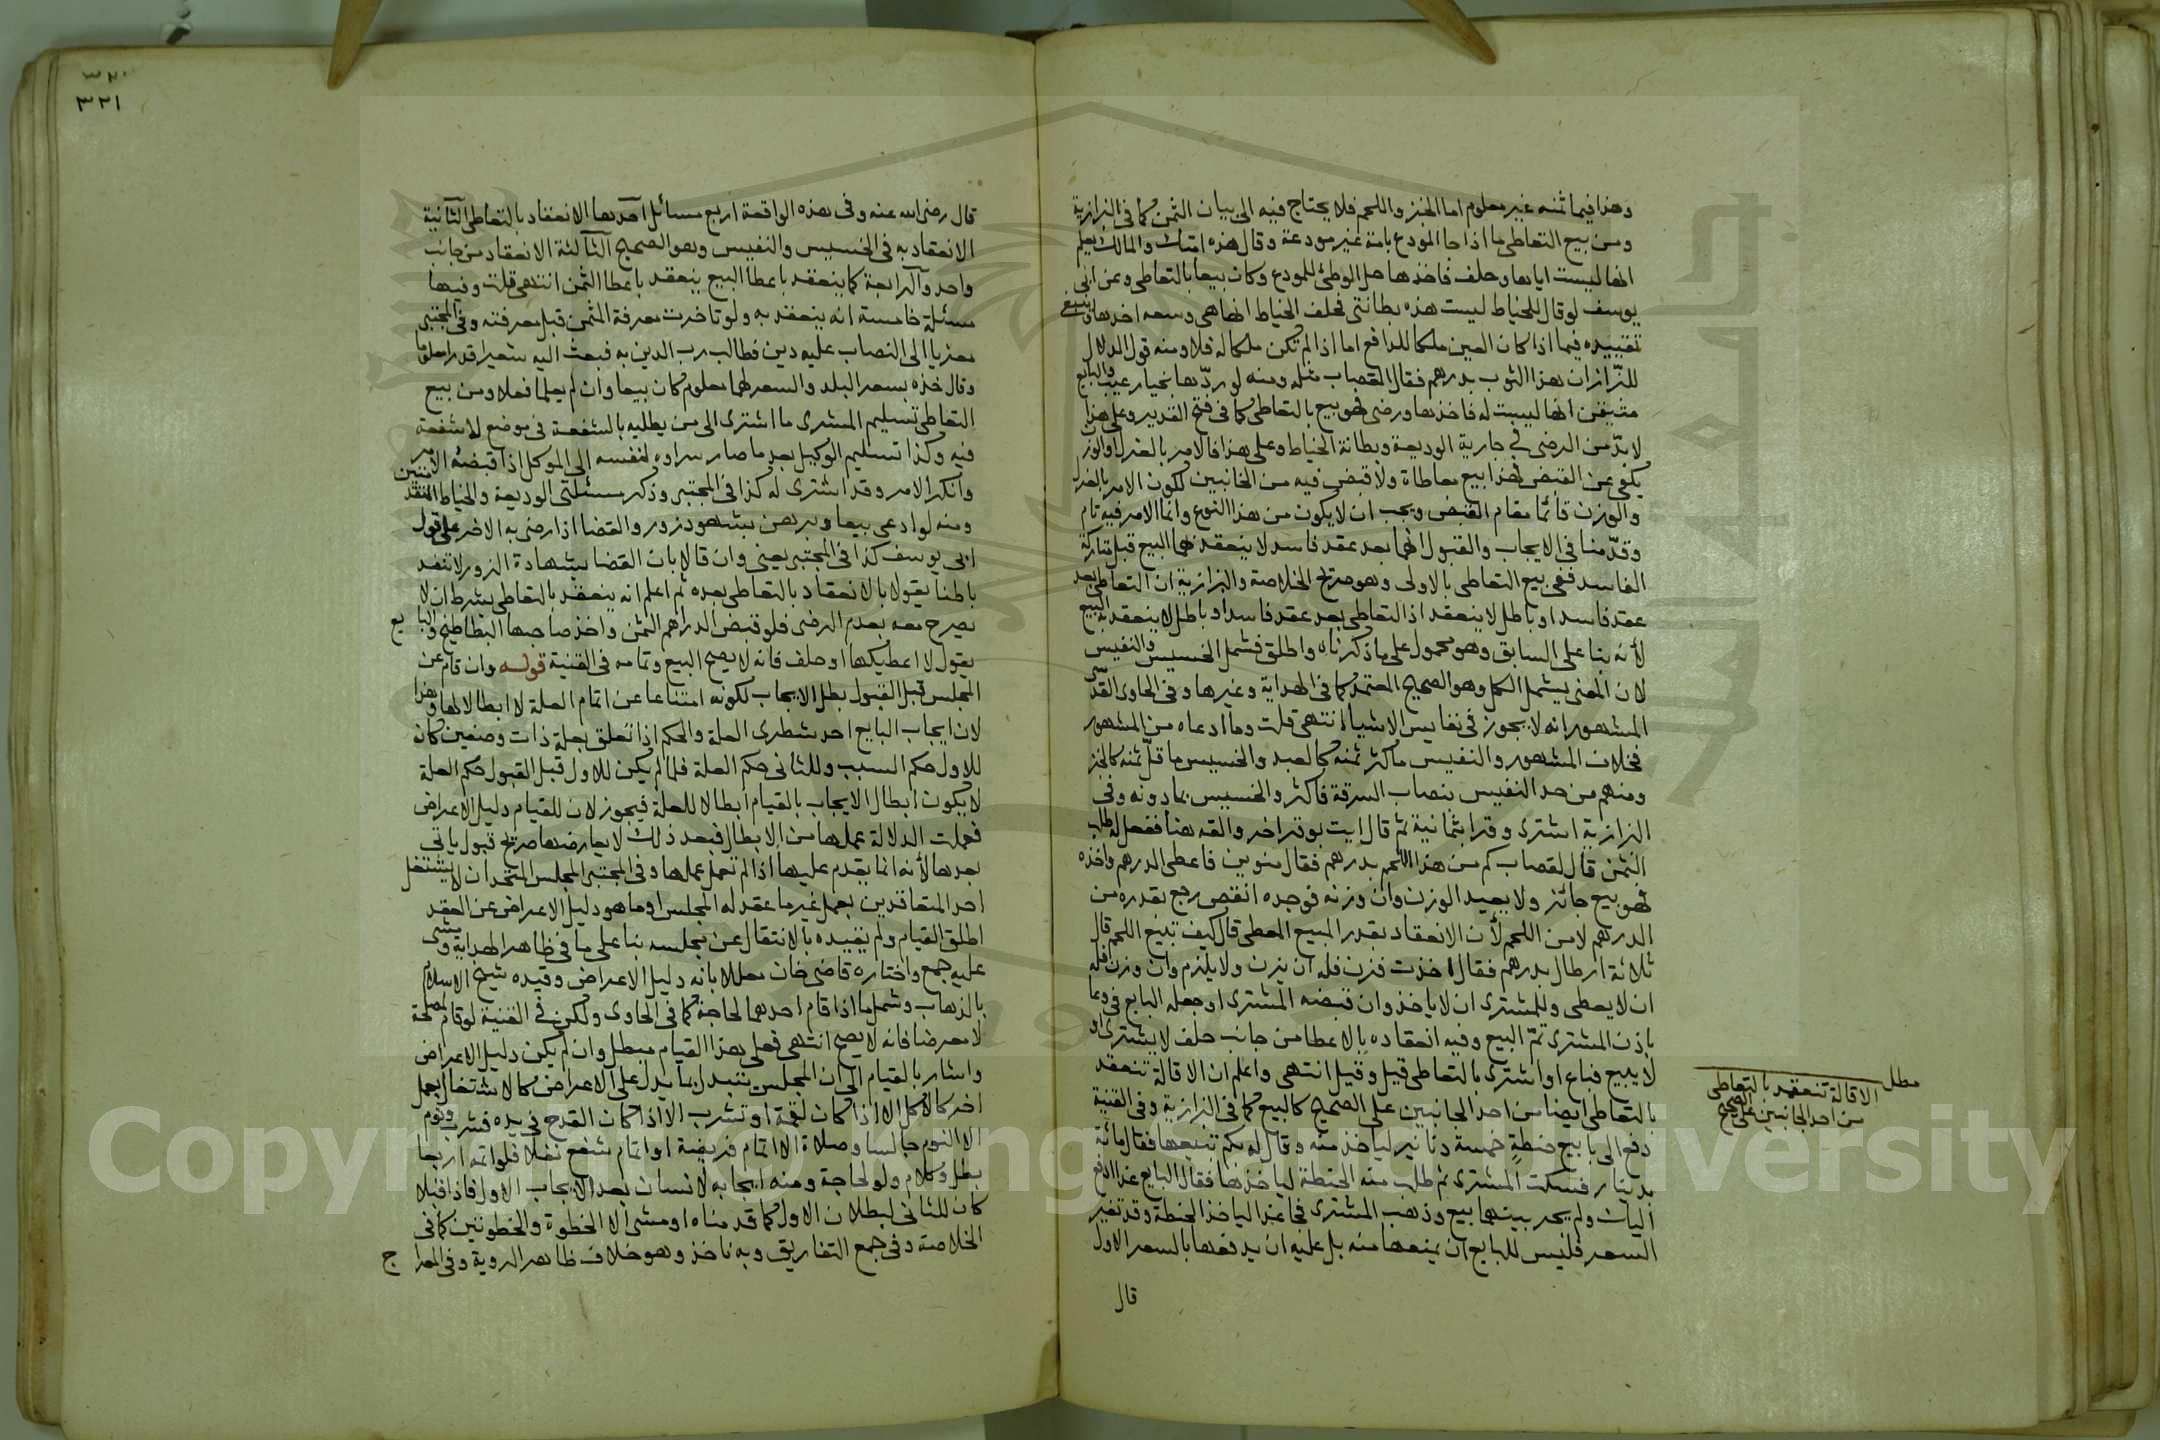 وهذا فيما ثمنه غير معلوم اما الخبز واللحم فلا يحتاج فيه الى بيان الثمن كما في البزازية
ومن بيع التعاطى ما اذا جا المودع بامة غير مودعة وقال هذه امتك والمالك يعلم
انها ليست اياها وحلف فاخذها حل الوطئ للمودع وكان بيعا بالتعاطى وعن ابى
يوسف لو قال للخياط ليست هذه بطانتى فحلف الخياط انها هي وسعه اخذها وينبغي
تقييده فيما اذا كان العين ملكا للدافع اما اذا لم تكن ملكا له فلا ومنه قول الدلال
للبزاز ان هذا الثوب بدرهم فقال القصاب مثله ومنه لو ردها بخيار عيب والبايع
متيقن انها ليست له فاخذها ورضى فهو بيع بالتعاطى كما في فتح القدير وعلى هذا
لا بدّ من الرضى في جارية الوديعة وبطانة الخياط وعلى هذا فالامر بالغزل او الوزن
يكفى عن القبض فهذا بيع معاطاة ولا قبض فيه من الجانبين لكون الامر بالغزل
والوزن قائما مقام القبض ويجب ان لا يكون من هذا النوع وانما الامر فيه تام
وقدّمنا في الايجاب والقبول انهما بعد عقد فاسد لا ينعقد بهما البيع قبل متاركة
الفاسد ففي بيع التعاطى بالاولى وهو صريح الخلاصة والبزازية ان التعاطى بعد
عقد فاسد او باطل لا ينعقد اذ التعاطى بعد عقد فاسد او باطل لا ينعقد به البيع
لأنه بنا على السابق وهو محمول على ما ذكرناه واطلق فشمل الخسيس والنفيس
لان المعنى يشمل الكل وهو الصحيح المعتمد كما في الهداية وغيرها وفي الحاوى القدسى
المشهور انه لا يجوز في نفايس الاشياء انتهى قلت وما ادعاه من المشهور
فخلاف المشهور والنفيس ما كثر ثمنه كالعبد والخسيس ما قلّ ثمنه كالخبز
ومنهم من حد النفيس بنصاب السرقة فاكثر والخسيس بما دونه وفي
البزازية اشترى وقرا بثمانية ثم قال ايت بوقر اخر والقه هنا ففعل له طلب
الثمن قال لقصاب كم من هذا اللحم بدرهم فقال منوين فاعطى الدرهم واخذه
فهو بيع جائز ولا يعيد الوزن وان وزنه فوجده انقص رجع بقدره من
الدرهم لا من اللحم لأن الانعقاد بقدر المبيع المعطى قال كيف تبيع اللحم قال
ثلاثة ارطال بدرهم فقال اخذت فزن فله ان يزن ولا يلزم وان وزن فله
ان لا يعطى وللمشترى ان لا ياخذ وان قبضه المشترى او جعله البايع في وعا
باذن المشترى تمّ البيع وفيه انعقاده بالاعطا من جانب حلف لا يشترى او
لا يبيع فباع او اشترى بالتعاطى قيل وقيل انتهى واعلم ان الاقالة تنعقد
بالتعاطى ايضا من احد الجانبين على الصحيح كالبيع كما في البزازية وفي القنية
دفع الى بايع حنطة خمسة دنانير لياخذ منه وقال له بكم تبيعها فقال مائة
بدينار فسكت المشترى ثم طلب منه الحنطة لياخذها فقال البايع غدا ادفع
اليك ولم يجر بينهما بيع وذهب المشترى فجا غدا لياخذ الحنطة وقد تغير
السعر فليس للبايع ان يمنعها منه بل عليه ان يدفعها بالسعر الاول
قال
مطل
الاقالة تنعقد بالتعاطى
من احد الجانبين على الصحيح
٣٢٠
٣٢١
قال رضى الله عنه وفى هذه الواقعة اربع مسائل احدها الانعقاد بالتعاطى الثانية
الانعقاد به في الخسيس والنفيس وهو الصحيح الثالثة الانعقاد من جانب
واحد والرابعة كما ينعقد باعطا البيع ينعقد باعطا الثمن انتهى قلت وفيها
مسئلة خامسة انه ينعقد به ولو تاخرت معرفة الثمن قبل معرفته وفي المجتبى
معزيا الى النصاب عليه دين فطالب رب الدين به فبعث اليه شعيرا قدرا معلوما
وقال خذه بسعر البلد والسعر لهما معلوم كان بيعا وان لم يعلما فلا ومن بيع
التعاطى تسليم المشترى ما اشترى الى من يطلبه بالشفعة في موضع لا شفعة
فيه وكذا تسليم الوكيل بعد ما صار سراوه لنفسه الى الموكل اذا قبضه الامر
وانكر الامر وقد اشترى له كذا في المجتبى وذكر مسئلتى الوديعة والخياط المتقدمتين
ومنه لو ادعى بيعا وبرهن بشهود زور والقضا اذا رضى به الاخر على قول
ابى يوسف كذا في المجتبى يعنى وان قالا بان القضا بشهادة الزور لا تنفذ
باطنا يقولا بالانعقاد بالتعاطى بعده ثم اعلم انه ينعقد بالتعاطى بشرط ان لا
يصرح معه بعدم الرضى فلو قبض الدراهم الثمن واخذ صاحبها البطاطيخ والبايع
يقول لا اعطيكها او حلف فانه لا يصح البيع وتمامه في القنية قوله وان قام عن
المجلس قبل القبول بطل الايجاب لكونه امتناعا عن اتمام العلة لا ابطالا لها وهذا
لان ايجاب البايع احد شطرى العلة والحكم اذا تعلق بعلة ذات وصفين كان
للاول حكم السبب وللثانى حكم العلة فلما لم يكن للاول قبل القبول حكم العلة
لا يكون ابطال الايجاب بالقيام ابطالا للعلة فيجوز لان للقيام دليل الاعراض
فعملت الدلالة عملها من الابطال فبعد ذلك لا يعارضها صريح قبول ياتى
بعدها لأنه انما يقدم عليها اذا لم تعمل عملها وفي المجتبى المجلس المتحد ان لا يشتغل
احد المتعاقدين بعمل غير ما عقد له المجلس او ما هو دليل الاعراض عن العقد
اطلق القيام ولم يقيده بالانتقال عن مجلسه بنا على ما في ظاهر الهداية ومشى
عليه جمع واختاره قاضى خان معللا بانه دليل الاعراض وقيده شيخ الاسلام
بالذهاب وشمل ما اذا قام احدهما لحاجة كما في الحاوى ولكن في القنية لو قام لمصلحة
لا معرضا فانه لا يصح انتهى فعلى هذا القيام مبطل وان لم يكن دليل الاعراض
واشار بالقيام الى ان المجلس يتبدل بما يدل على الاعراض كالاشتغال بعمل
اخر كالاكل الا اذا كان لقمة او تشرب الا اذا كان القدح في يده فشرب ونوم
الا النوم جالسا وصلاة الا اتمام فريضة او اتمام شفع نفلا فلو اتمه اربعا
بطل وكلام ولو لحاجة ومنه ايجابه لانسان بعد الايجاب الاول فاذا قبلا
كان للثانى لبطلان الاول كما قدمناه او مشى الا الخطوة والخطوتين كما في
الخلاصة وفي جمع التفاريق وبه ناخذ وهو خلاف ظاهر الروية وفي المعراج